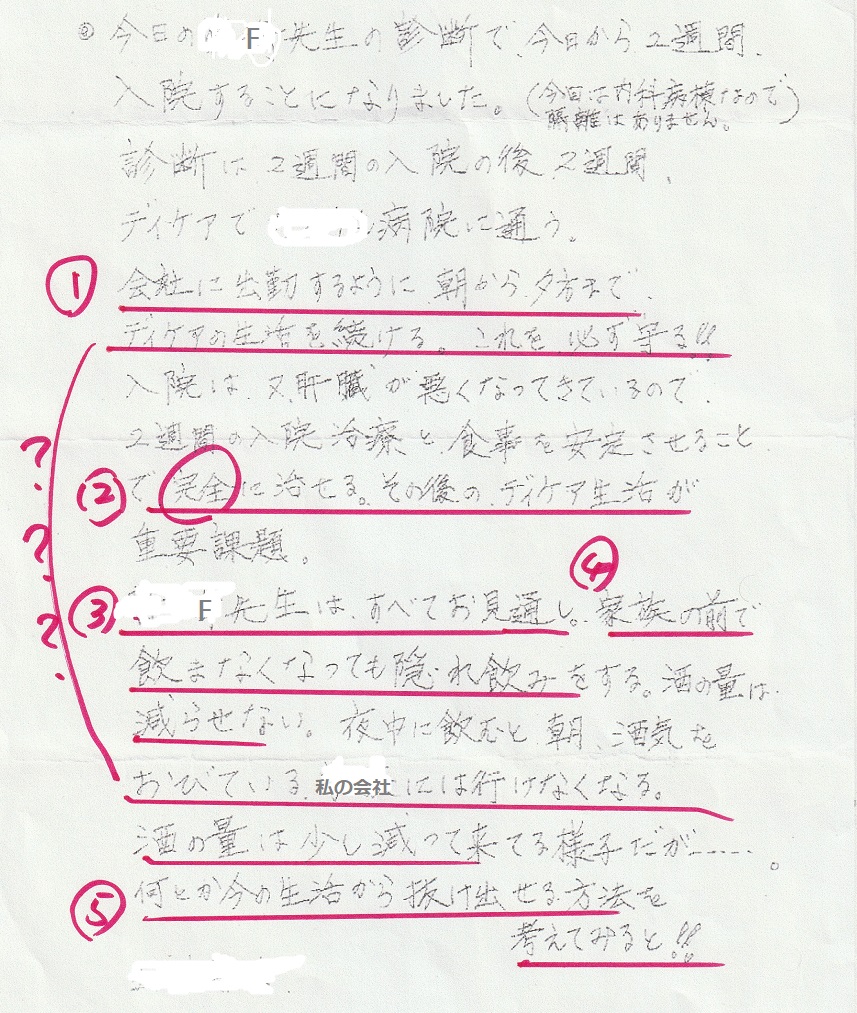 ◎今日のF先生の診断で、今日から2週間、
入院することになりました。(今日は内科病棟なので
隔離はありません。)
診断は2週間の入院の後、2週間、
ディケアで病院に通う。
① 会社に出勤するように朝から夕方まで、
ディケアの生活を続ける。これを必ず守る!!
入院は、又、肝臓が悪くなってきているので、
2週間の入院治療と、食事を安定させること
② で完全に治せる。その後の、ディケア生活が
重要課題。
④
③ F先生は、すべてお見通し。家族の前で
飲まなくなっても隠れ飲みをする。酒の量は、
減らせない。夜中に飲むと、朝、酒気を
おびている。私の会社には行けなくなる。
酒の量は少し減って来てる様子だが……。
⑤ 何とか今の生活から抜け出せる方法を
考えてみると!!
?
?
?